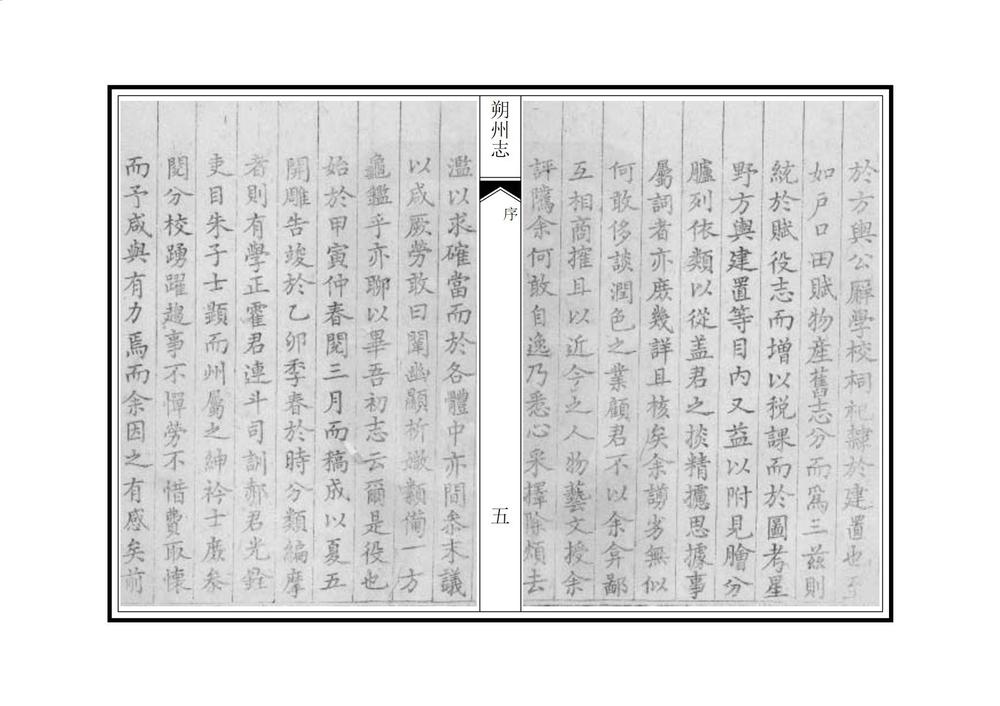 於方輿公廨學校祠祀隸於建置也至
如戶口田賦物產舊志分而爲三茲則
統於賦役志而增以稅課而於圖考星
野方輿建置等目內又益以附見膾分
臚列依類以從蓋君之掞精攄思據事
屬詞者亦庶幾詳且核矣余謭劣無似
何敢侈談潤色之業顧君不以余弇鄙
互相商搉且以近今之人物藝文授余
評隲余何敢自逸乃悉心采擇除煩去
朔州志
序
五
濫以求確當而於各體中亦間叅末議
以成厥勞敢曰闡幽顯析媺類備一方
龜鑑乎亦聊以畢吾初志云爾是役也
始於甲寅仲春閱三月而稿成以夏五
開雕告竣於乙卯季春於時分類編摩
者則有學正霍君連斗司訓郝君光銓
吏目朱子士顯而州屬之紳衿士庶叅
閱分校踴躍趨事不憚勞不惜費取懷
而予咸與有力焉而余因之有感矣前